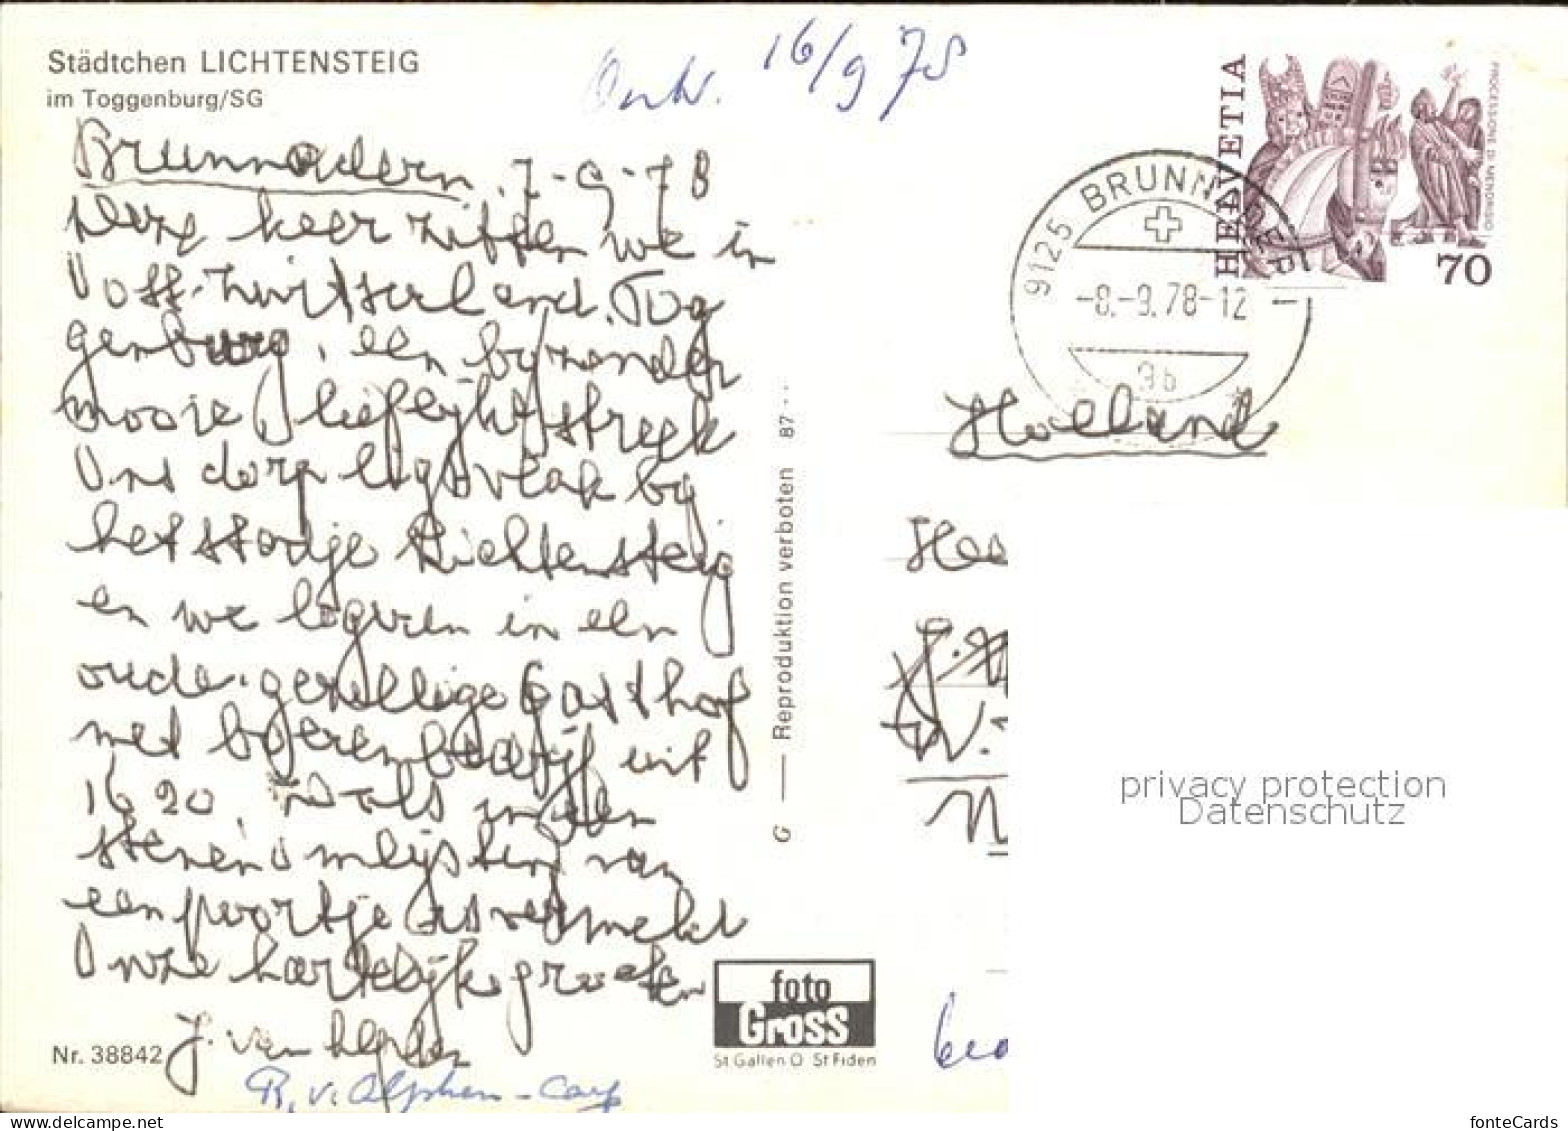 Städtchen LICHTENSTEIG
im Toggenburg/SG
16/9 78
Brunnadern, 7-9-78
Deze keer zitten we in
Oost-Zwitserland. Tog
genburg, een byzonder
mooie, lieflijke streek
Ons dorp ligt vlak by
het stadje Lichtensteig
en we logeren in een
oude gezellige Gasthof
met boerenbedrijf uit
1620, zoals in de
stenen omlijsting van
een poortje is vermeld
Onze hartelijke groeten
J. van
R. v. Alphen-
Nr. 38842
G — Reproduktion verboten 87
foto
Gross
St Gallen O St Fiden
HELVETIA
PROCESSIONE DI MENDRISIO
70
9125 BRUNNADERN
-8.-9.78-12
9b
Holland
Hee
W.
N
privacy protection
Datenschutz
fonteCards